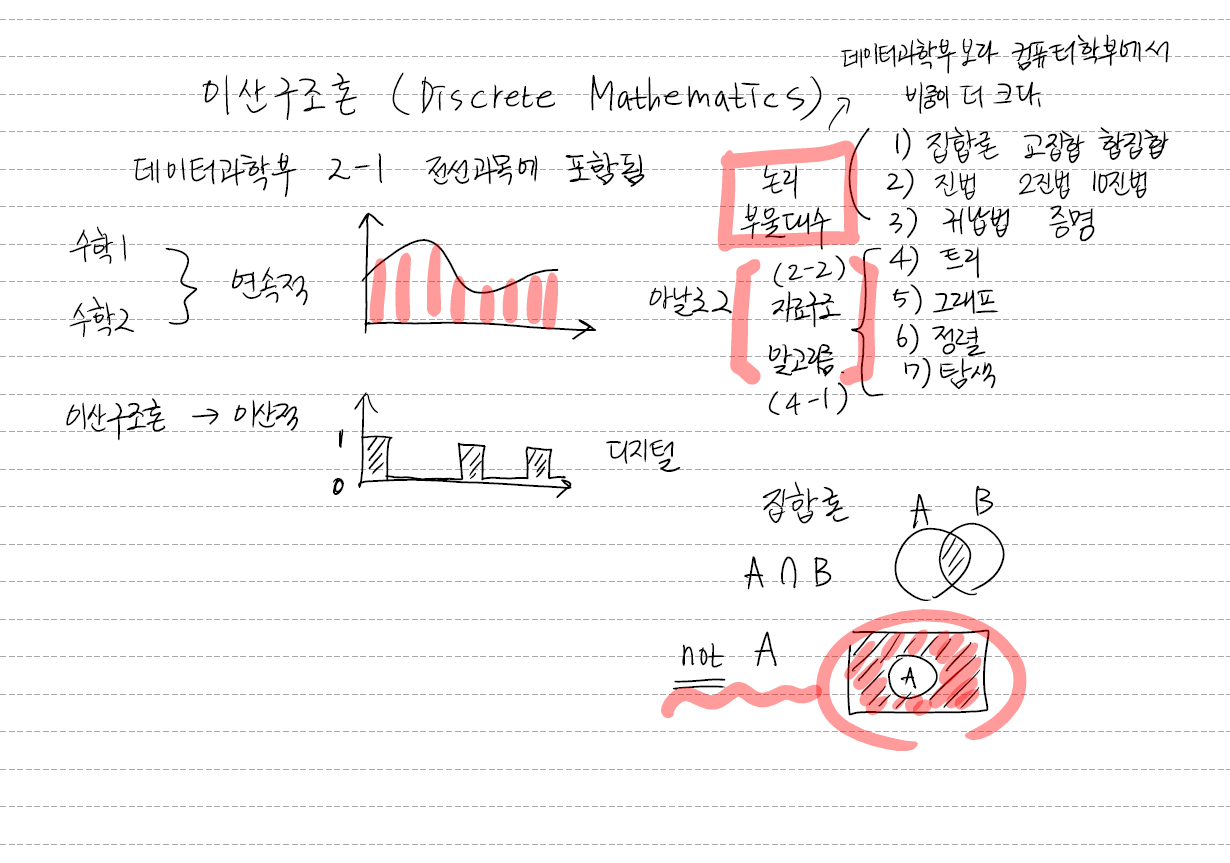 데이터과학부보다 컴퓨터학부에서
비중이 더 크다.
이산구조론 (Discrete Mathematics)
데이터과학부 2-1 전선과목에 포함됨
논리
부울대수
1) 집합론 교집합 합집합
2) 진법 2진법 10진법
3) 귀납법 증명
수학1
수학2
연속적
아날로그
(2-2)
자료구조
알고리즘
(4-1)
4) 트리
5) 그래프
6) 정렬
7) 탐색
이산구조론 → 이산적
1
0
디지털
집합론
A B
A ∩ B
not A
A